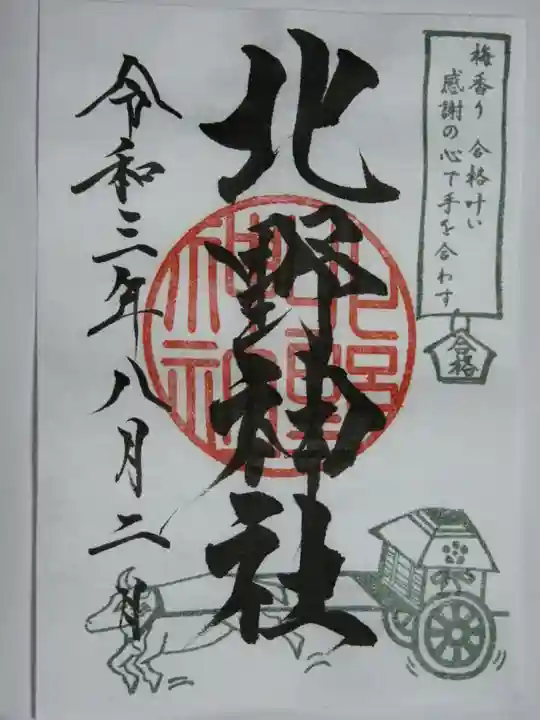 梅香り 合格叶い
感謝の心で手を合わす
合格
北野神社
北野神社
令和三年八月二日